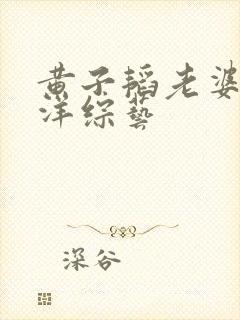 黄子韬老婆
洋综艺
深谷